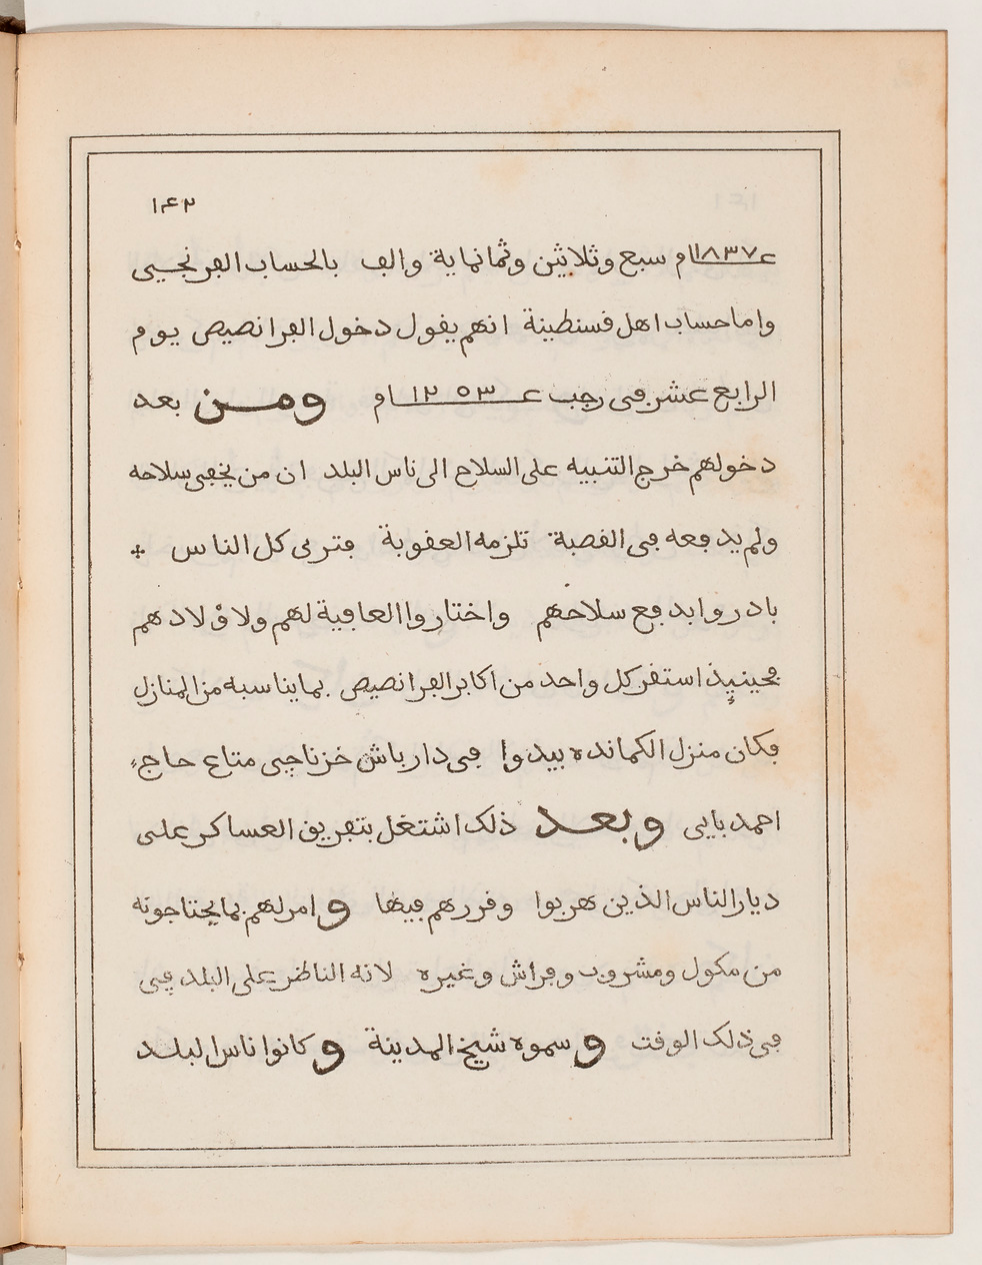 ١٤٢
١٨٣٧ام سبع وثلاثين وثمانماية والف بالحساب الفرنجيي
واما حساب اهل قسنطينة انهم يقول دخول الفرانصيص يوم
الرابع عشر في رجب ١٢٥٣ام ومن بعد
دخولهم خرج التنبيه على السلاح الى ناس البلد ان من يخفي سلاحه
ولم يدفعه في القصبة تلزمه العقوبة فترى كل الناس
بادروا بدفع سلاحهم واختاروا العافية لهم ولاولادهم
فحينيٍذ استقر كل واحد من اكابر الفرانصيص بما يناسبه من المنازل
فكان منزل الكمانده بيدوا في دار باش خزناجي متاع حاج
احمد بايي وبعد ذلك اشتغل بتفريق العساكر على
ديار الناس الذين هربوا وقررهم فيها وامر لهم بما يحتاجونه
من مكول ومشروب وفراش وغيره لانه الناظر على البلد في
في ذلك الوقت وسموه شيخ المدينة وكانوا ناس البلد